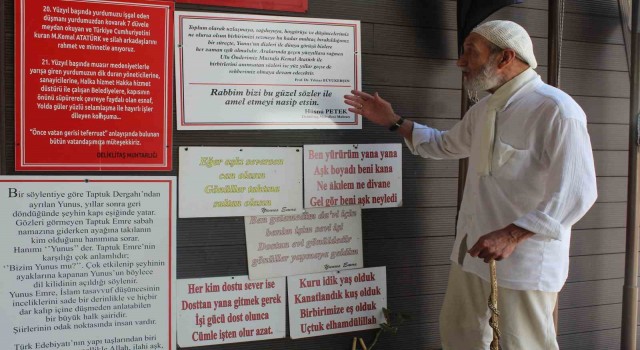 20. Yüzyıl başında yurdumuzu işgal eden
düşmanı yurdumuzdan kovarak 7 düvele
meydan okuyan ve Türkiye Cumhuriyetini
kuran M.Kemal ATATÜRK ve silah arkadaşlarını
rahmet ve minnetle anıyoruz.
21. Yüzyıl başında muasır medeniyetlerle
yarışa giren yurdumuzun dik duran yöneticilerine,
sanayicilerine, Halka hizmet Hakka hizmet
düsturü ile çalışan Belediyelere, kapısının
önünü süpürerek çevreye faydalı olan esnaf,
Yolda güler yüzlü insanların hedefi olsun
dileken koğuşuma...
"Önce vatan gerisi teferruat" anlayışında olan
bütün vatandaşımıza müteşekkiriz.
DELİKLİTAŞ MUHTARLIĞI
Toplum olarak selamlaşmaya, saygıya, hoşgörüye
ne olursa olsun birbirimizi sevmeye
bir süreçte, Yunus'un dizeleri
her zaman ışık olmuştur.
Ulu Önderimiz Mustafa Kemal
Rabbim bizi bu güzel sözler ile
amel etmeyi nasip etsin.
Hüsnü PETEK
Bir söylentiye göre Taptuk Dergahı'ndan
ayrılan Yunus, yıllar sonra geri
döndüğünde şeyhin kapı eşiğinde yatar.
Gözleri görmeyen Taptuk Emre sabah
namazına giderken ayağına takılanın
kim olduğunu hanımına sorar.
Hanımı ''Yunus'' der. Taptuk Emre'nin
karşılığı çok anlamlıdır;
''Bizim Yunus mu?'' Çok etkilenip şeyhinin
ayaklarına kapanan Yunus'un böylece
dil kilidinin açıldığı söylenir.
Yunus Emre, İslam tasavvuf düşüncesinin
inceliklerini sade bir derinlikle ve hiçbir
dar kalıp içine düşmeden anlatabilen
bir büyük halk şairidir.
Şiirlerinin odak noktasında insan vardır.
Türk Edebiyatı'nın yapı taşlarından biri
Eğer aşkı seversen
can olasın
Gönüller tahtına
sultan olasın
Yunus Emre
Ben yürürüm yana yana
Aşk boyadı beni kana
Ne âkilem ne divane
Gel gör beni aşk neyledi
Ben gelmedim da'vi için
Benim işim sevi için
Dostun evi gönüldedir
Gönüller yapmaya geldim
Yunus Emre
Her kim dost ile sevise
Dosttan yana gitmek gerek
İşi gücü dost olunca
Cümle işten olur azat.
Kuru idik yaş olduk
Kanatlandık kuş olduk
Birbirimize eş olduk
Uçtuk elhamdülillah